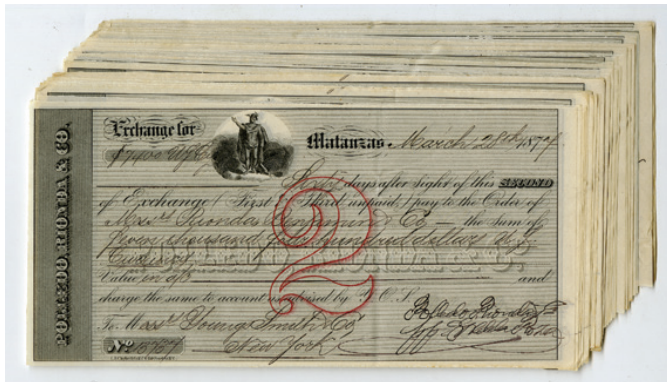 POLLEDO, RIONDA & CO.
Exchange for
$7400 Matanzas, March 28th 1874
Sixty days after sight of this SECOND
of Exchange (First & Third unpaid) pay to the Order of
Messrs Rionda, Benjamin & Co — the sum of
Seven thousand four hundred dollars U.S.
Currency
Value in a/c and
charge the same to account as advised by Y.O.S.
To Messrs Young Smith & Co
No New York
2